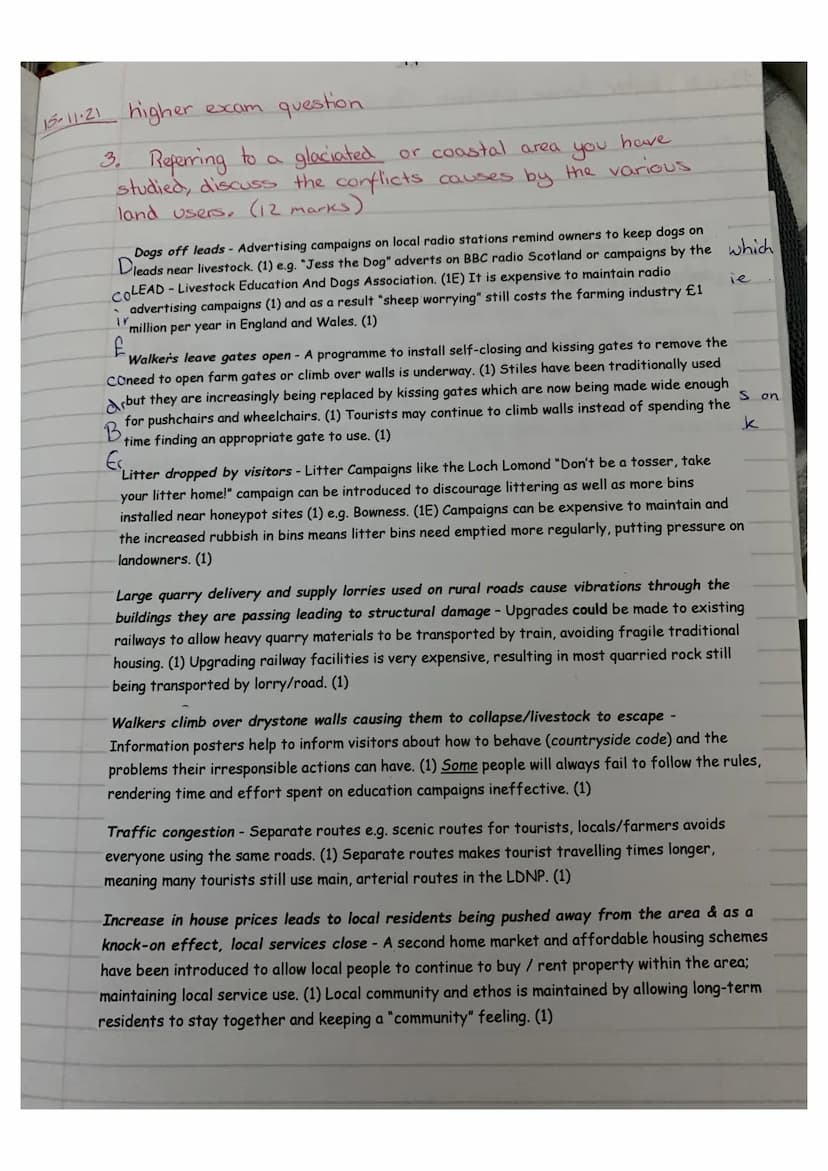 15.11.21 higher exam question
3. Referring to a glaciated or coastal area you have
studied, discuss the conflicts causes by the various
land users. (12 marks)
Dogs off leads - Advertising campaigns on local radio stations remind owners to keep dogs on
leads near livestock. (1) e.g. "Jess the Dog" adverts on BBC radio Scotland or campaigns by the
LEAD - Livestock Education And Dogs Association. (1E) It is expensive to maintain radio
advertising campaigns (1) and as a result "sheep worrying" still costs the farming industry £1
million per year in England and Wales. (1)
which
ie
Walkers leave gates open - A programme to install self-closing and kissing gates to remove the
need to open farm gates or climb over walls is underway. (1) Stiles have been traditionally used
but they are increasingly being replaced by kissing gates which are now being made wide enough
for pushchairs and wheelchairs. (1) Tourists may continue to climb walls instead of spending the
time finding an appropriate gate to use. (1)
s on
k
Litter dropped by visitors - Litter Campaigns like the Loch Lomond "Don't be a tosser, take
your litter home!" campaign can be introduced to discourage littering as well as more bins
installed near honeypot sites (1) e.g. Bowness. (1E) Campaigns can be expensive to maintain and
the increased rubbish in bins means litter bins need emptied more regularly, putting pressure on
landowners. (1)
Large quarry delivery and supply lorries used on rural roads cause vibrations through the
buildings they are passing leading to structural damage - Upgrades could be made to existing
railways to allow heavy quarry materials to be transported by train, avoiding fragile traditional
housing. (1) Upgrading railway facilities is very expensive, resulting in most quarried rock still
being transported by lorry/road. (1)
Walkers climb over drystone walls causing them to collapse/livestock to escape -
Information posters help to inform visitors about how to behave (countryside code) and the
problems their irresponsible actions can have. (1) Some people will always fail to follow the rules,
rendering time and effort spent on education campaigns ineffective. (1)
Traffic congestion - Separate routes e.g. scenic routes for tourists, locals/farmers avoids
everyone using the same roads. (1) Separate routes makes tourist travelling times longer,
meaning many tourists still use main, arterial routes in the LDNP. (1)
Increase in house prices leads to local residents being pushed away from the area & as a
knock-on effect, local services close - A second home market and affordable housing schemes
have been introduced to allow local people to continue to buy / rent property within the area;
maintaining local service use. (1) Local community and ethos is maintained by allowing long-term
residents to stay together and keeping a "community" feeling. (1)